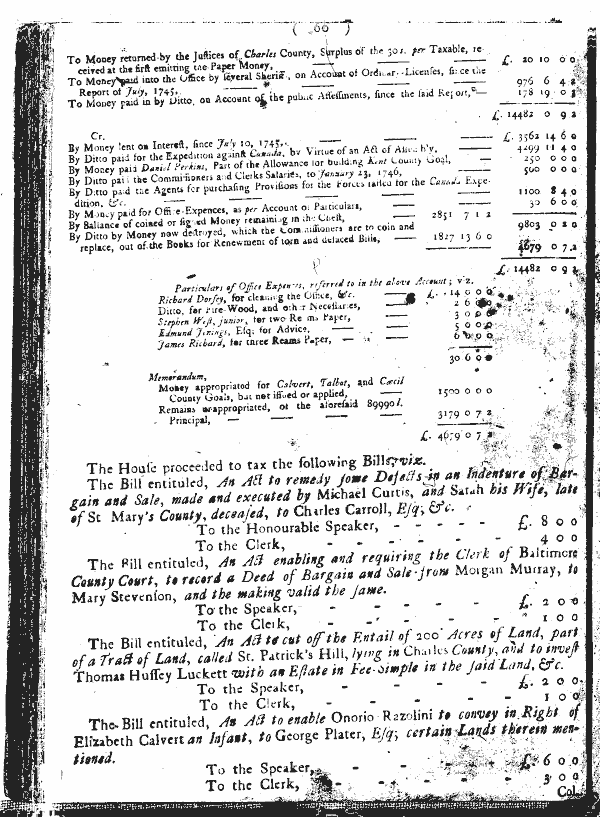 ( 60 )
To Money returned by the Justices of Charles County, Surplus of the 30s. per Taxable, re-
ceived at the first emitting the Paper Money, — — £. 20 10 0 0
To Money paid into the Office by several Sheriffs, on Account of Ordinary Licenses, since the
Report of July, 1745, — — 976 6 4 2
To Money paid in by Ditto, on Account of the public Assessments, since the said Report, — 178 19 0 2
£. 14482 0 9 2
Cr.
By Money lent on Interest, since July 10, 1745, — — £. 3562 14 6 0
By Ditto paid for the Expedition against Canada, by Virtue of an Act of Assembly, 4299 11 4 0
By Money paid Daniel Perkins, Part of the Allowance for building Kent County Goal, — 250 0 0 0
By Ditto paid the Commissioners and Clerks Salaries, to January 23, 1746, — 560 0 0 0
By Ditto paid the Agents for purchasing Provisions for the Forces raised for the Canada Expe-
dition, &c. — — 1100 8 4 0
By Money paid for Office-Expences, as per Account of Particulars, — 30 6 0 0
By Ballance of coined or signed Money remaining in the Chest, 2851 7 1 2 9803 0 2 0
By Ditto by Money now destroyed, which the Commissioners are to coin and
replace, out of the Books for Renewment of torn and defaced Bills, 1827 13 6 0 4679 0 7 2
£. 14482 0 9 2
Particulars of Office Expences, referred to in the above Account; viz.
Richard Dorsey, for cleaning the Office, &c. — £. 14 0 0 0
Ditto, for Fire-Wood, and other Necessaries, — 2 6
Stephen West, junior, for two Reams Paper, 3 0 0
Edmund Jenings, Esq; for Advice, — 5 0 0
James Richard, for three Reams Paper, — 6 0 0
30 6 0
Memorandum,
Money appropriated for Calvert, Talbot, and Cæcil
County Goals, but not issued or applied, — 1500 0 0 0
Remains unappropriated, of the aforesaid 89990 l.
Principal, — — — 3179 0 7 2
£. 4679 0 7 2
The House proceeded to tax the following Bills; viz.
The Bill entituled, An Act to remedy some Defects in an Indenture of Bar-
gain and Sale, made and executed by Michael Curtis, and Sarah his Wife, late
of St Mary's County, deceased, to Charles Carroll, Esq; &c.
To the Honourable Speaker, - - - - £. 8 0 0
To the Clerk, - - - - 4 0 0
The Bill entituled, An Act enabling and requiring the Clerk of Baltimore
County Court, to record a Deed of Bargain and Sale from Morgan Murray, to
Mary Stevenson, and the making valid the same.
To the Speaker, - - - - £. 2 0 0
To the Clerk, - - - - 1 0 0
The Bill entituled, An Act to cut off the Entail of 200 Acres of Land, part
of a Tract of Land, called St. Patrick's Hill, lying in Charles County, and to invest
Thomas Hussey Luckett with an Estate in Fee-Simple in the said Land, &c.
To the Speaker, - - - - £. 2 0 0
To the Clerk, - - - - 1 0 0
The Bill entituled, An Act to enable Onorio Razolini to convey in Right of
Elizabeth Calvert an Infant, to George Plater, Esq; certain Lands therein men-
tioned.
To the Speaker, - - - - £. 6 0 0
To the Clerk, - - - - 3 0 0
Col.